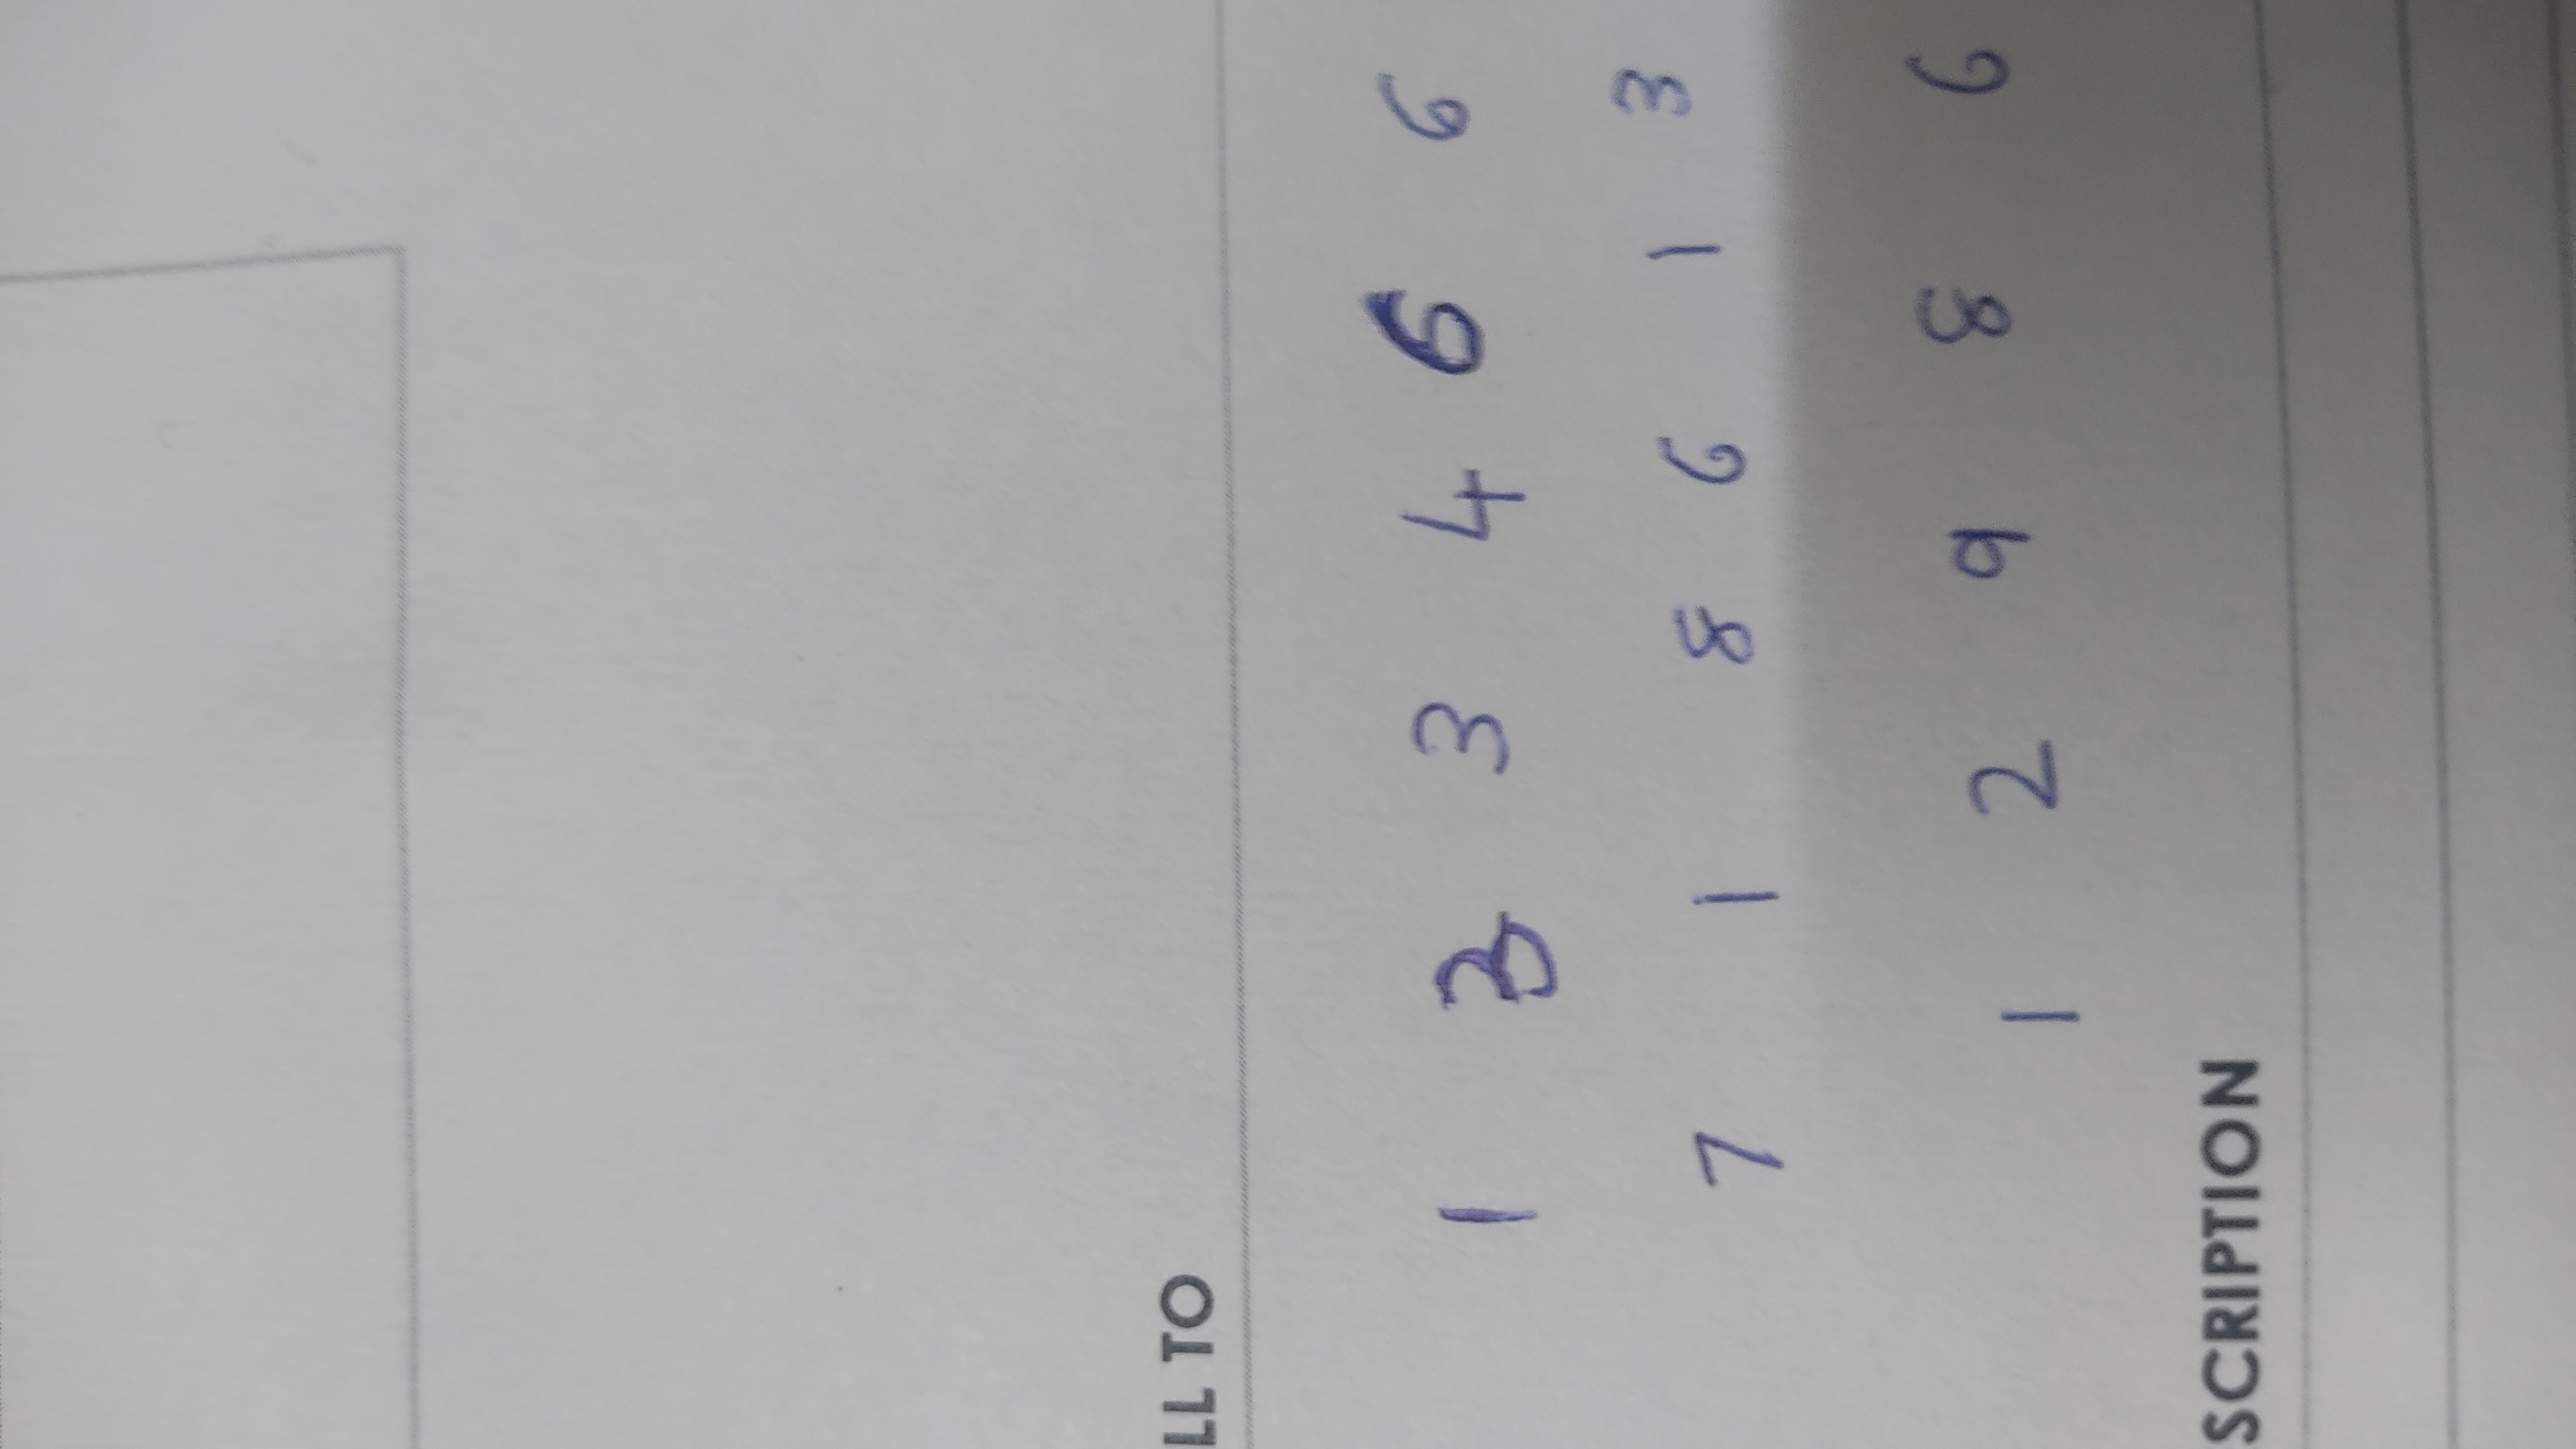 LL TO
1 3 4 6 6
7 1 8 6 1 3
1 2 9 8 6
SCRIPTION